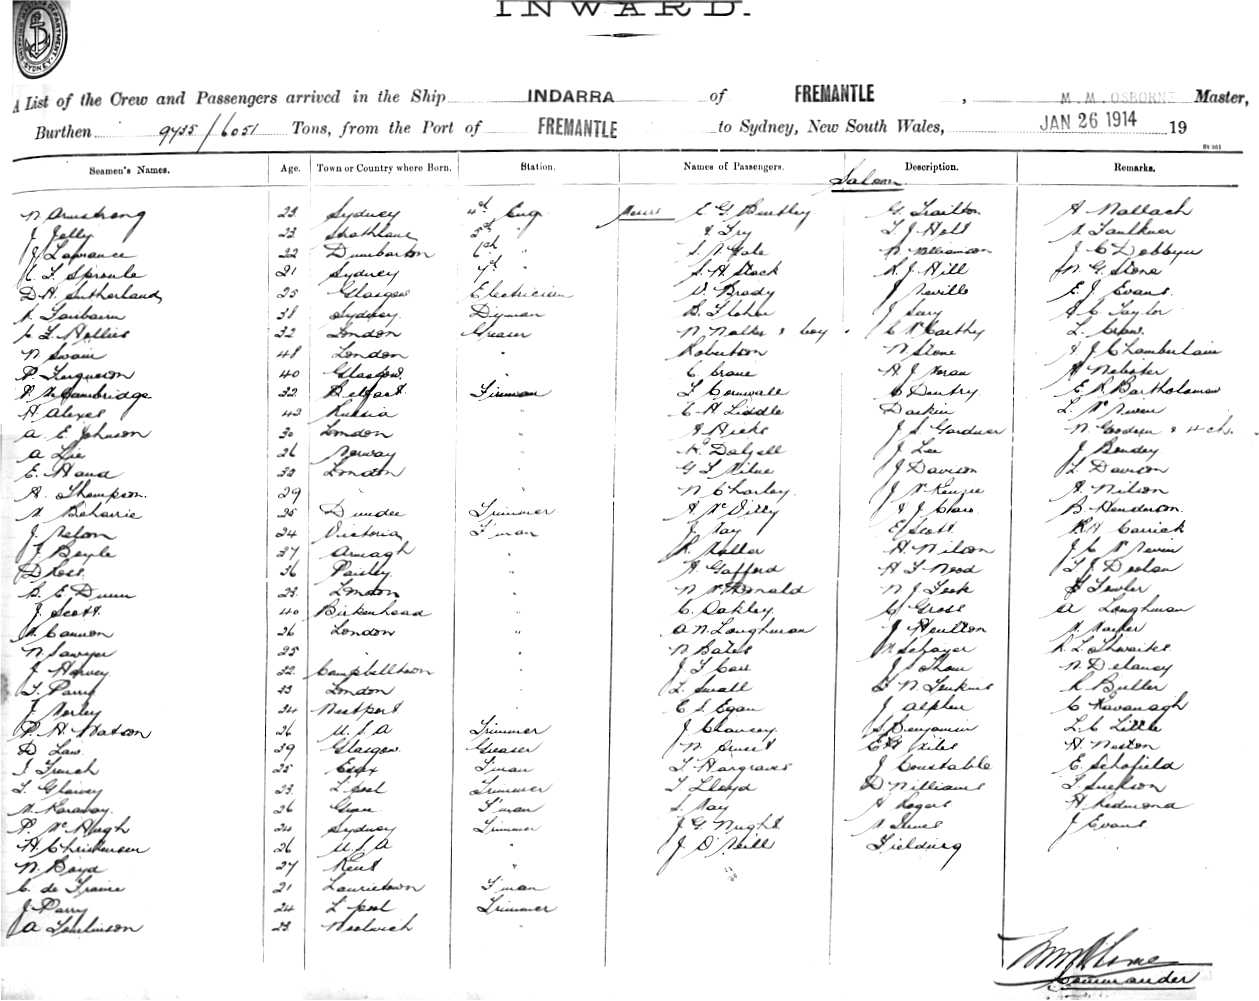 INWARD.
SHIPPING MASTER'S DEPARTMENT. SYDNEY
A List of the Crew and Passengers arrived in the Ship INDARRA of FREMANTLE, M. M. OSBORNE Master,
Burthen 9735/6051 Tons, from the Port of FREMANTLE to Sydney, New South Wales, JAN 26 1914 19
Seamen's Names. Age. Town or Country where Born. Station. Names of Passengers. Description. Remarks.
Saloon
W Armstrong 23 Sydney 4th Eng Messrs E G Buntley G Trailton A Wallach
J Jelly 23 Strathlane 5th " J Fry T J Holt Faulkner
J Lawrance 22 Dumbarton 6th " S W Yale W Williamson J C Debbyn
C T Sproule 21 Sydney 7th " S H Stock R J Hill W G Stone
D H Sutherland 25 Glasgow Electrician Brady J Neville E J Evans
Fairbairn 38 Sydney Dyman B Fisher J Sary Taylor
C L Hollies 32 London Greaser W Walter & boy C McCarthy L Crow
W Swain 48 London " Robertson W Stone A J Chamberlain
P. Ferguson 40 Glasgow " C Crane A J Moran Webster
Cambridge 32 Belfast Fireman T Cornwall C Dentry E R Bartholomew
H Alexes 42 Russia " C H Liddle Daskin L McNiven
A E Johnson 30 London " J Hicks J S Gardner W Goodson & 4 ch.
A Lie 26 Norway " Dalzell J Lee J Bendey
E. Hand 32 London " G T Milne J Davison L Davison
A. Thompson. 29 " " W Charley J McKenzie A Wilson
Beharrie 25 Dundee Trimmer A McVilly A J Clare B Henderson
J. Nelson 24 Victoria F'man J Way E Scott Carrick
J Boyle 27 Armagh " Walter H. Wilson J C McNiven
D Ross 36 Paisley " A Gafford H T Wood T J Doolan
E Dunn 23 London " W McDonald W J Leek Fowler
J. Scott 40 Birkenhead " C. Oakley C Gross A Loughman
Cannon 26 London " A W Loughman J Heulton
W Sawyer 25 " " W Bates Schayer L Thwaites
J Harvey 32 Campbelltown " J T Carr W Delaney
T. Parry 23 London " L. Small W Jenkins R Butler
J Morley 24 Westport " E S Egan J Alpha C Kavanagh
P. H. Watson 26 U.S.A Trimmer J Chancey S Benjamin L C Little
D Law 39 Glasgow Greaser W H Weston
J French 25 Essex F'man T Hargraves J Constable E. Schofield
T. Glavey 23 L'pool Trimmer T Lloyd D Williams T Jackson
Karaway 26 F'man S. Way A Rogers A Redmond
P. McHugh 24 Sydney Trimmer J G Wright J Evans
H. Christensen 26 U.S.A " J O'Neill Fielding
W. Boyd 27 Kent "
C. de Fraine 21 Laurietown F'man
J Parry 24 L'pool Trimmer
A Tomlinson 23 Woolwich "
Commander